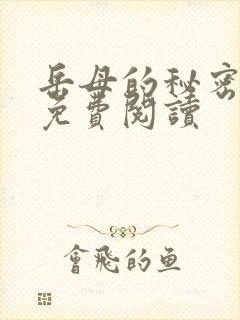 岳母的秘密
免費閱讀
會飛的鱼